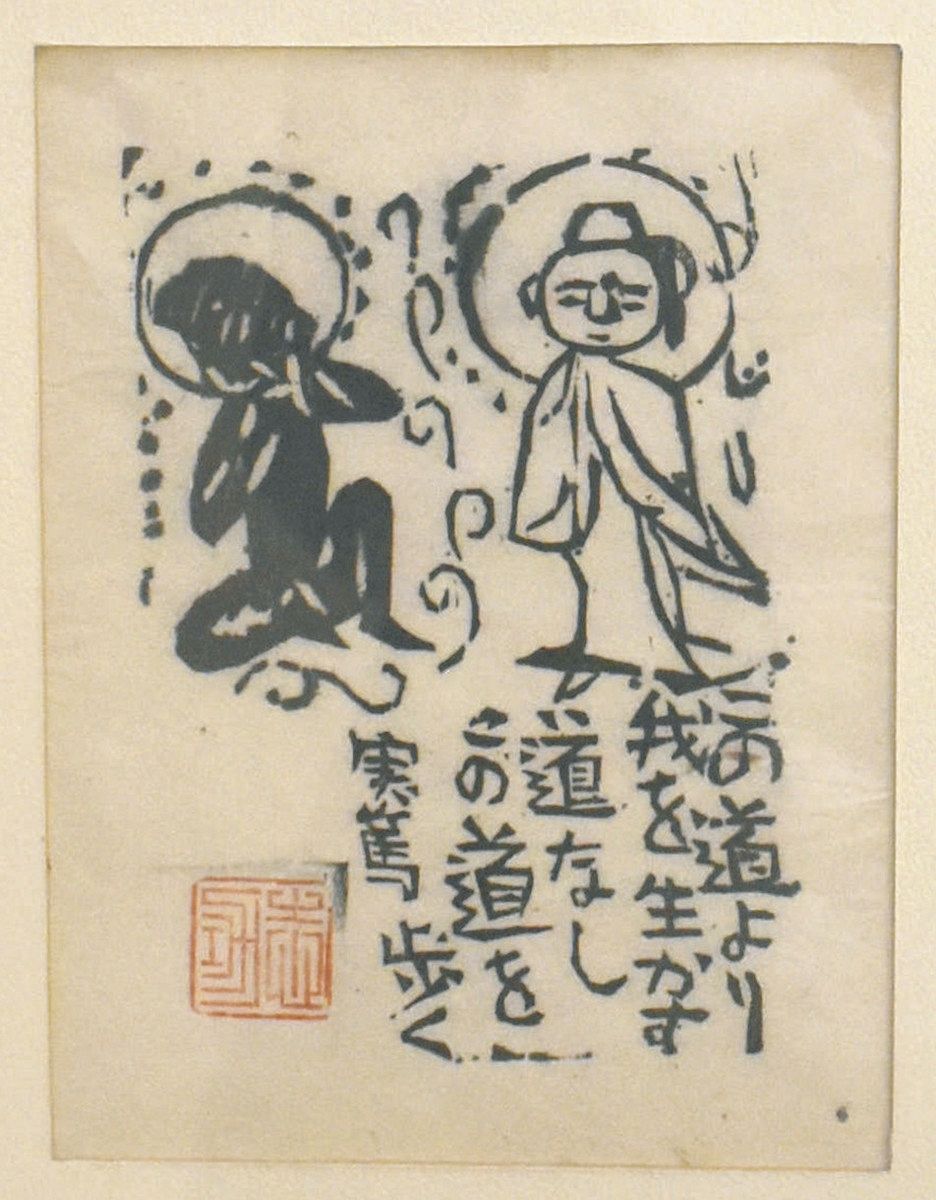 この道より
我を生かす
道なし
この道を
歩く
実篤